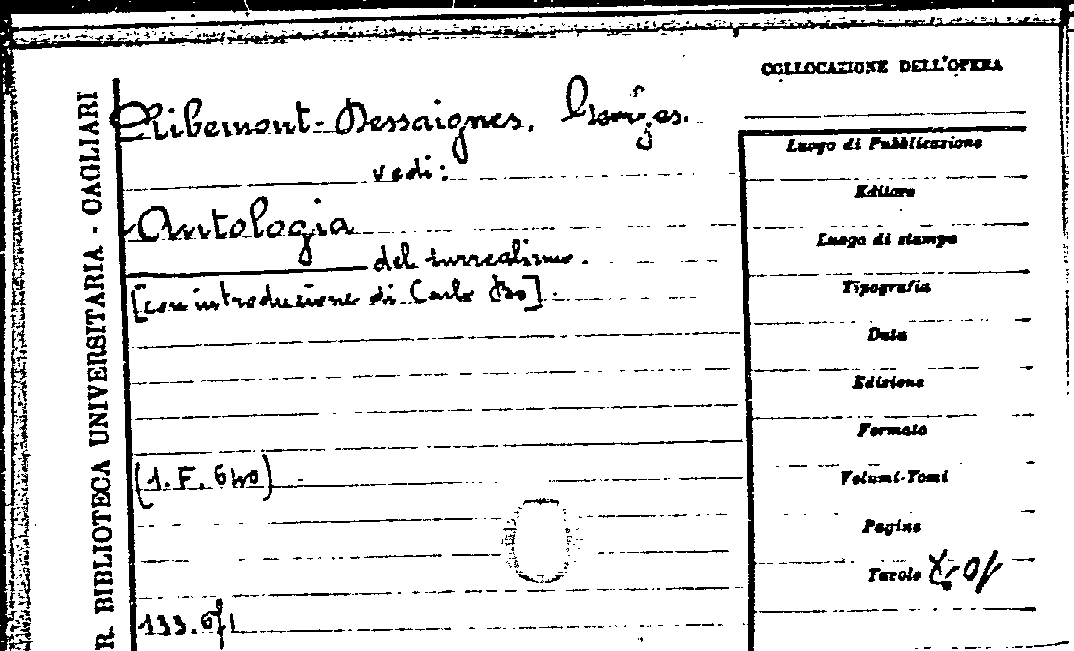 R. BIBLIOTECA UNIVERSITARIA - CAGLIARI
Ribemont-Dessaignes, Georges.
vedi:
Antologia
del surrealismo.
[con introduzione di Carlo Bo].
(1. F. 640)
133.671
COLLOCAZIONE DELL'OPERA
Luogo di Pubblicazione
Editore
Luogo di stampa
Tipografia
Data
Edizione
Formato
Volumi-Tomi
Pagine
Tavole